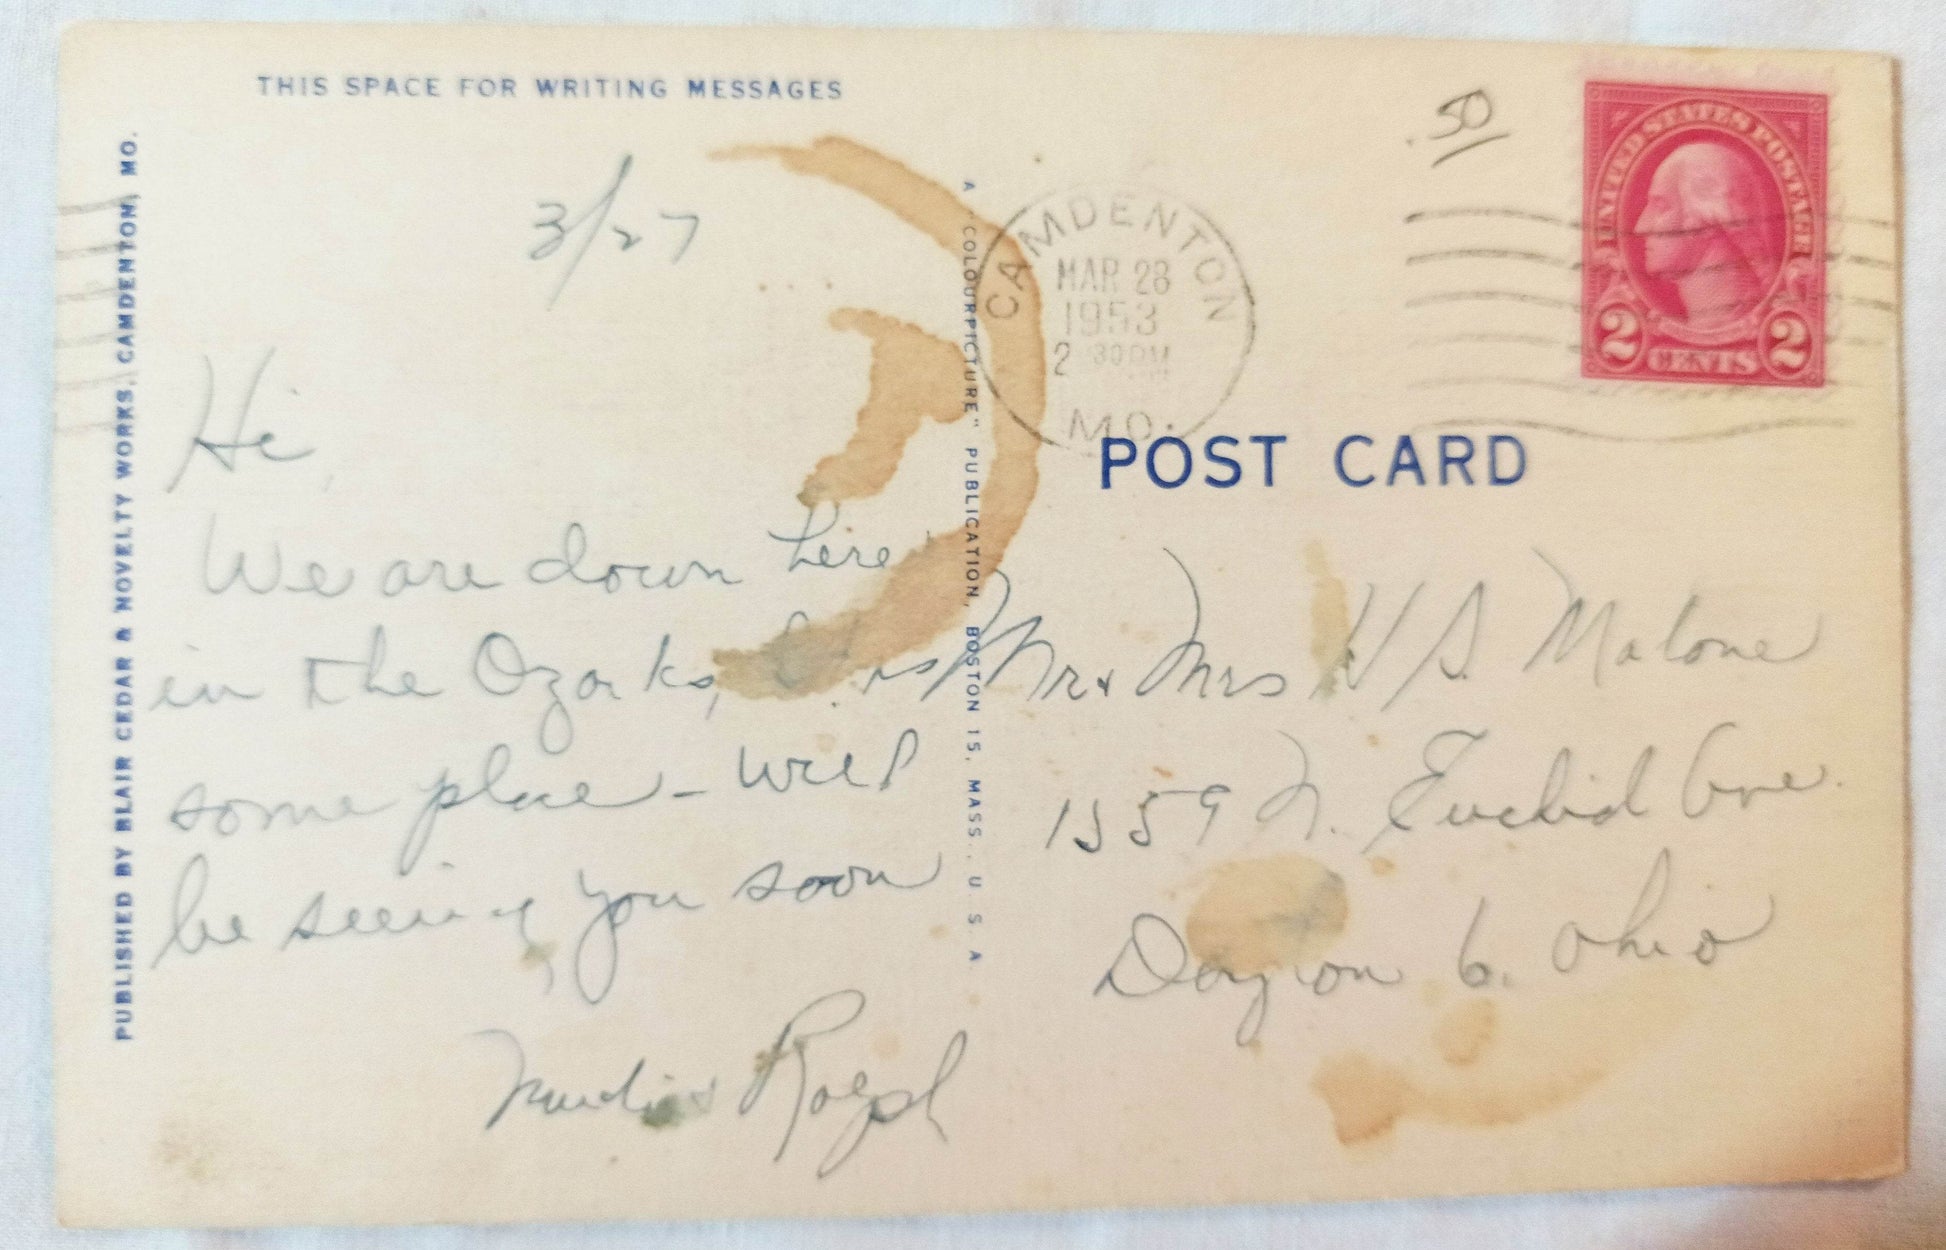 THIS SPACE FOR WRITING MESSAGES
PUBLISHED BY BLAIR CEDAR & NOVELTY WORKS, CAMDENTON, MO.
3/27
Hi
We are down here
in the Ozarks,
some place - will
be seeing you soon
Ralph
A "COLOURPICTURE" PUBLICATION, BOSTON 15, MASS., U. S. A.
CAMDENTON
MAR 28
1953
2 30 PM
MO.
.50
UNITED STATES POSTAGE
2 CENTS 2
POST CARD
Mr & Mrs H S. Malone
1559 N. Euclid Ave.
Dayton 6. Ohio